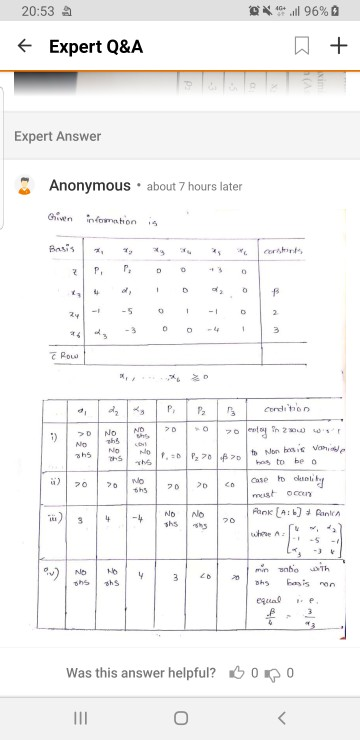 20:53
4G+
96%
Expert Q&A
Expert Answer
Anonymous • about 7 hours later
Given information is
Basis x₁ x₂ x₃ x₄ x₅ x₆ constants
Z P₁ P₂ 0 0 +3 0
x₃ 4 α₁ 1 0 α₂ 0 β
x₄ -1 -5 0 1 -1 0 2
x₆ α₃ -3 0 0 -4 1 3
Z̄ Row
x₁, ......, x₆ ≥ 0
α₁ α₂ α₃ P₁ P₂ P₃ condition
i) >0 NO rhs NO rhs >0 =0 >0 entry in Z row w.r.t
NO rhs NO rhs NO rhs P₁=0 P₂>0 β>0 to Non basis variable
has to be 0
ii) >0 >0 NO rhs >0 >0 <0 case to duality
must occur
iii) 3 4 -4 NO rhs NO rhs >0 Rank [A:b] ≠ Rank A
where A =
4 α₁ α₂
-1 -5 -1
α₃ -3
NO rhs NO rhs 4 3 <0 >0 min ratio with
rhs basis non
equal i.e.
β/4 = 3/α₃
Was this answer helpful? 0 0